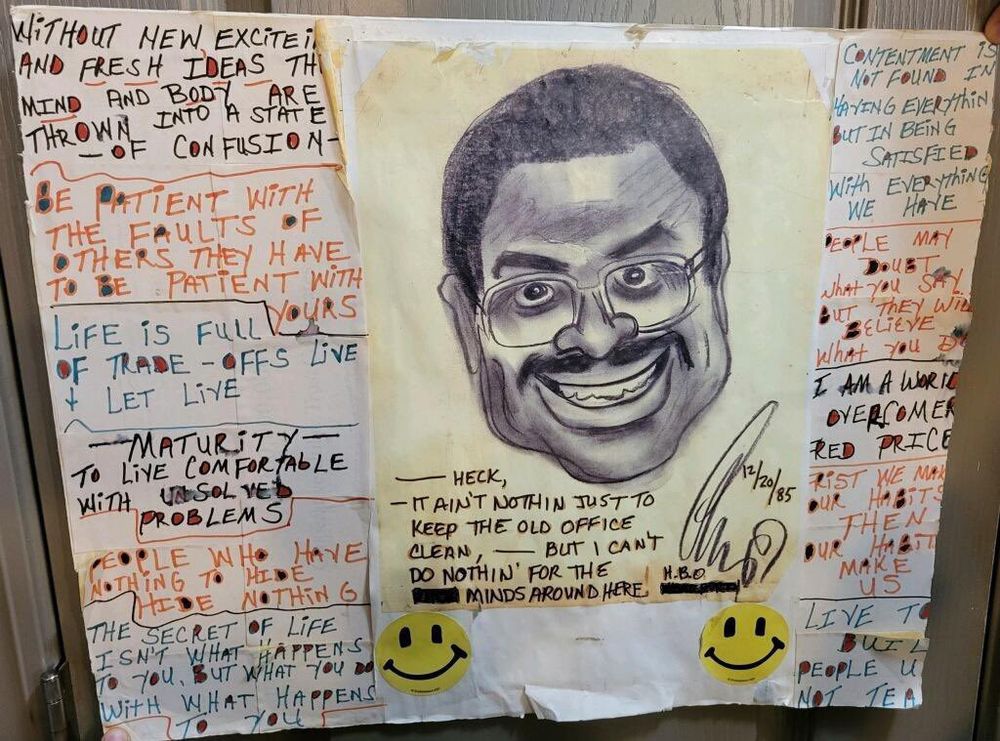 WITHOUT NEW EXCITEI
AND FRESH IDEAS TH
MIND AND BODY ARE
THROWN INTO A STATE
- OF CONFUSION -
BE PATIENT WITH
THE FAULTS OF
OTHERS THEY HAVE
TO BE PATIENT WITH
YOURS
LiFE iS FULL
OF TRADE - OFFS LiVE
+ LET LiVE
— MATURITY —
TO LiVE COMFORTABLE
WiTH UNSOLVED
PROBLEMS
PEOPLE WHO HAVE
NOTHiNG TO HiDE
HiDE NOTHiNG
THE SECRET OF LiFE
ISN'T WHAT HAPPENS
TO YOU, BUT WHAT YOU DO
WiTH WHAT HAPPENS
TO YOU
— HECK,
- IT AIN'T NOTHIN JUST TO
KEEP THE OLD OFFICE
CLEAN, — BUT I CAN'T
DO NOTHIN' FOR THE
MINDS AROUND HERE
12/20/85
H.B.O.
CONTENTMENT iS
NOT FOUND IN
HAViNG EVERYTHiN
BUT IN BEiNG
SATiSFiED
WiTH EVERYTHiNG
WE HAVE
PEOPLE MAY
DOUBT
WHAT YOU SAY
BUT THEY WiL
BELiEVE
WHAT YOU DO
I AM A WORL
OVERCOMER
RED PRICE
FiRST WE MAK
OUR HABiTS
THEN
OUR HABiT
MAKE
US
LiVE TO
BUiL
PEOPLE U
NOT TEA